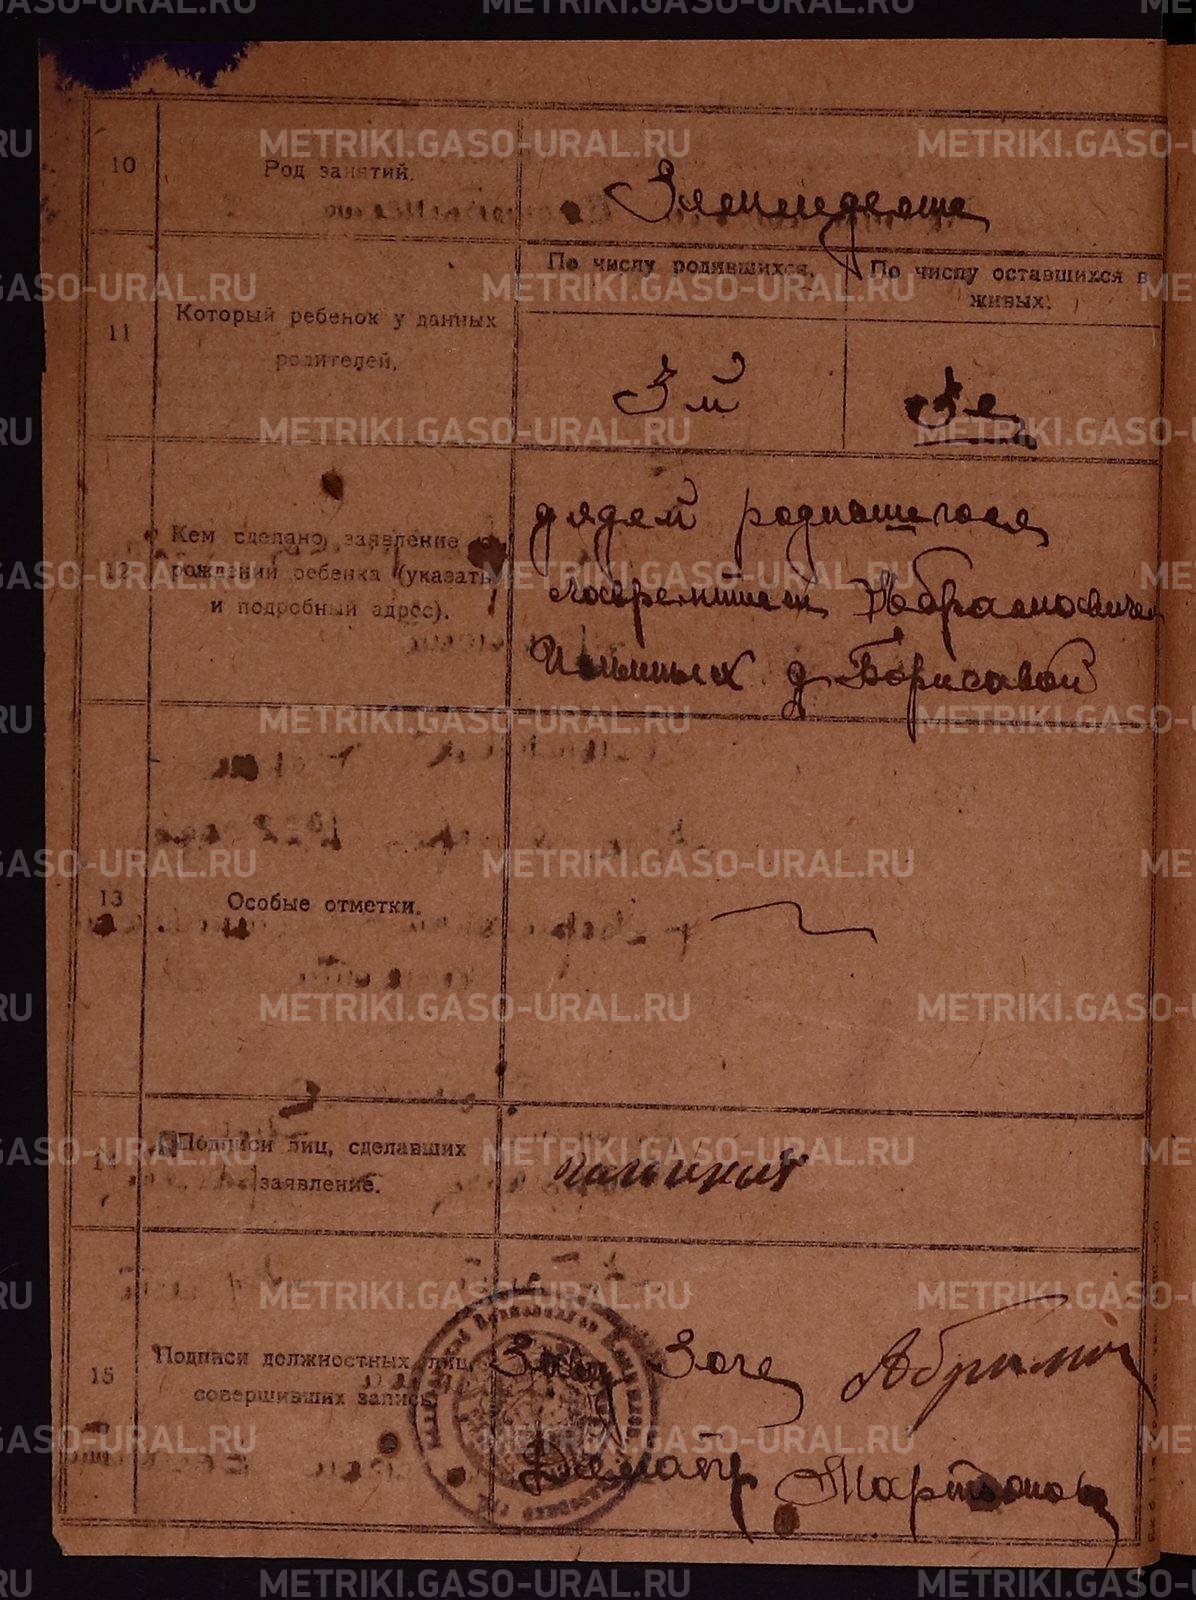 10
Род занятий.
Земледелие
11
Который ребенок у данных
родителей.
По числу родившихся.
По числу оставшихся в
живых.
3й
3й
12
Кем сделано заявление о
рождении ребенка (указать
и подробный адрес).
дядей родившегося
Абрамовичем
Ильиных д. Борисовой
13
Особые отметки.
14
Подписи лиц, сделавших
заявление.
15
Подписи должностных лиц,
совершивших запись.
Зав Загс
Мартьянов
METRIKI.GASO-URAL.RU